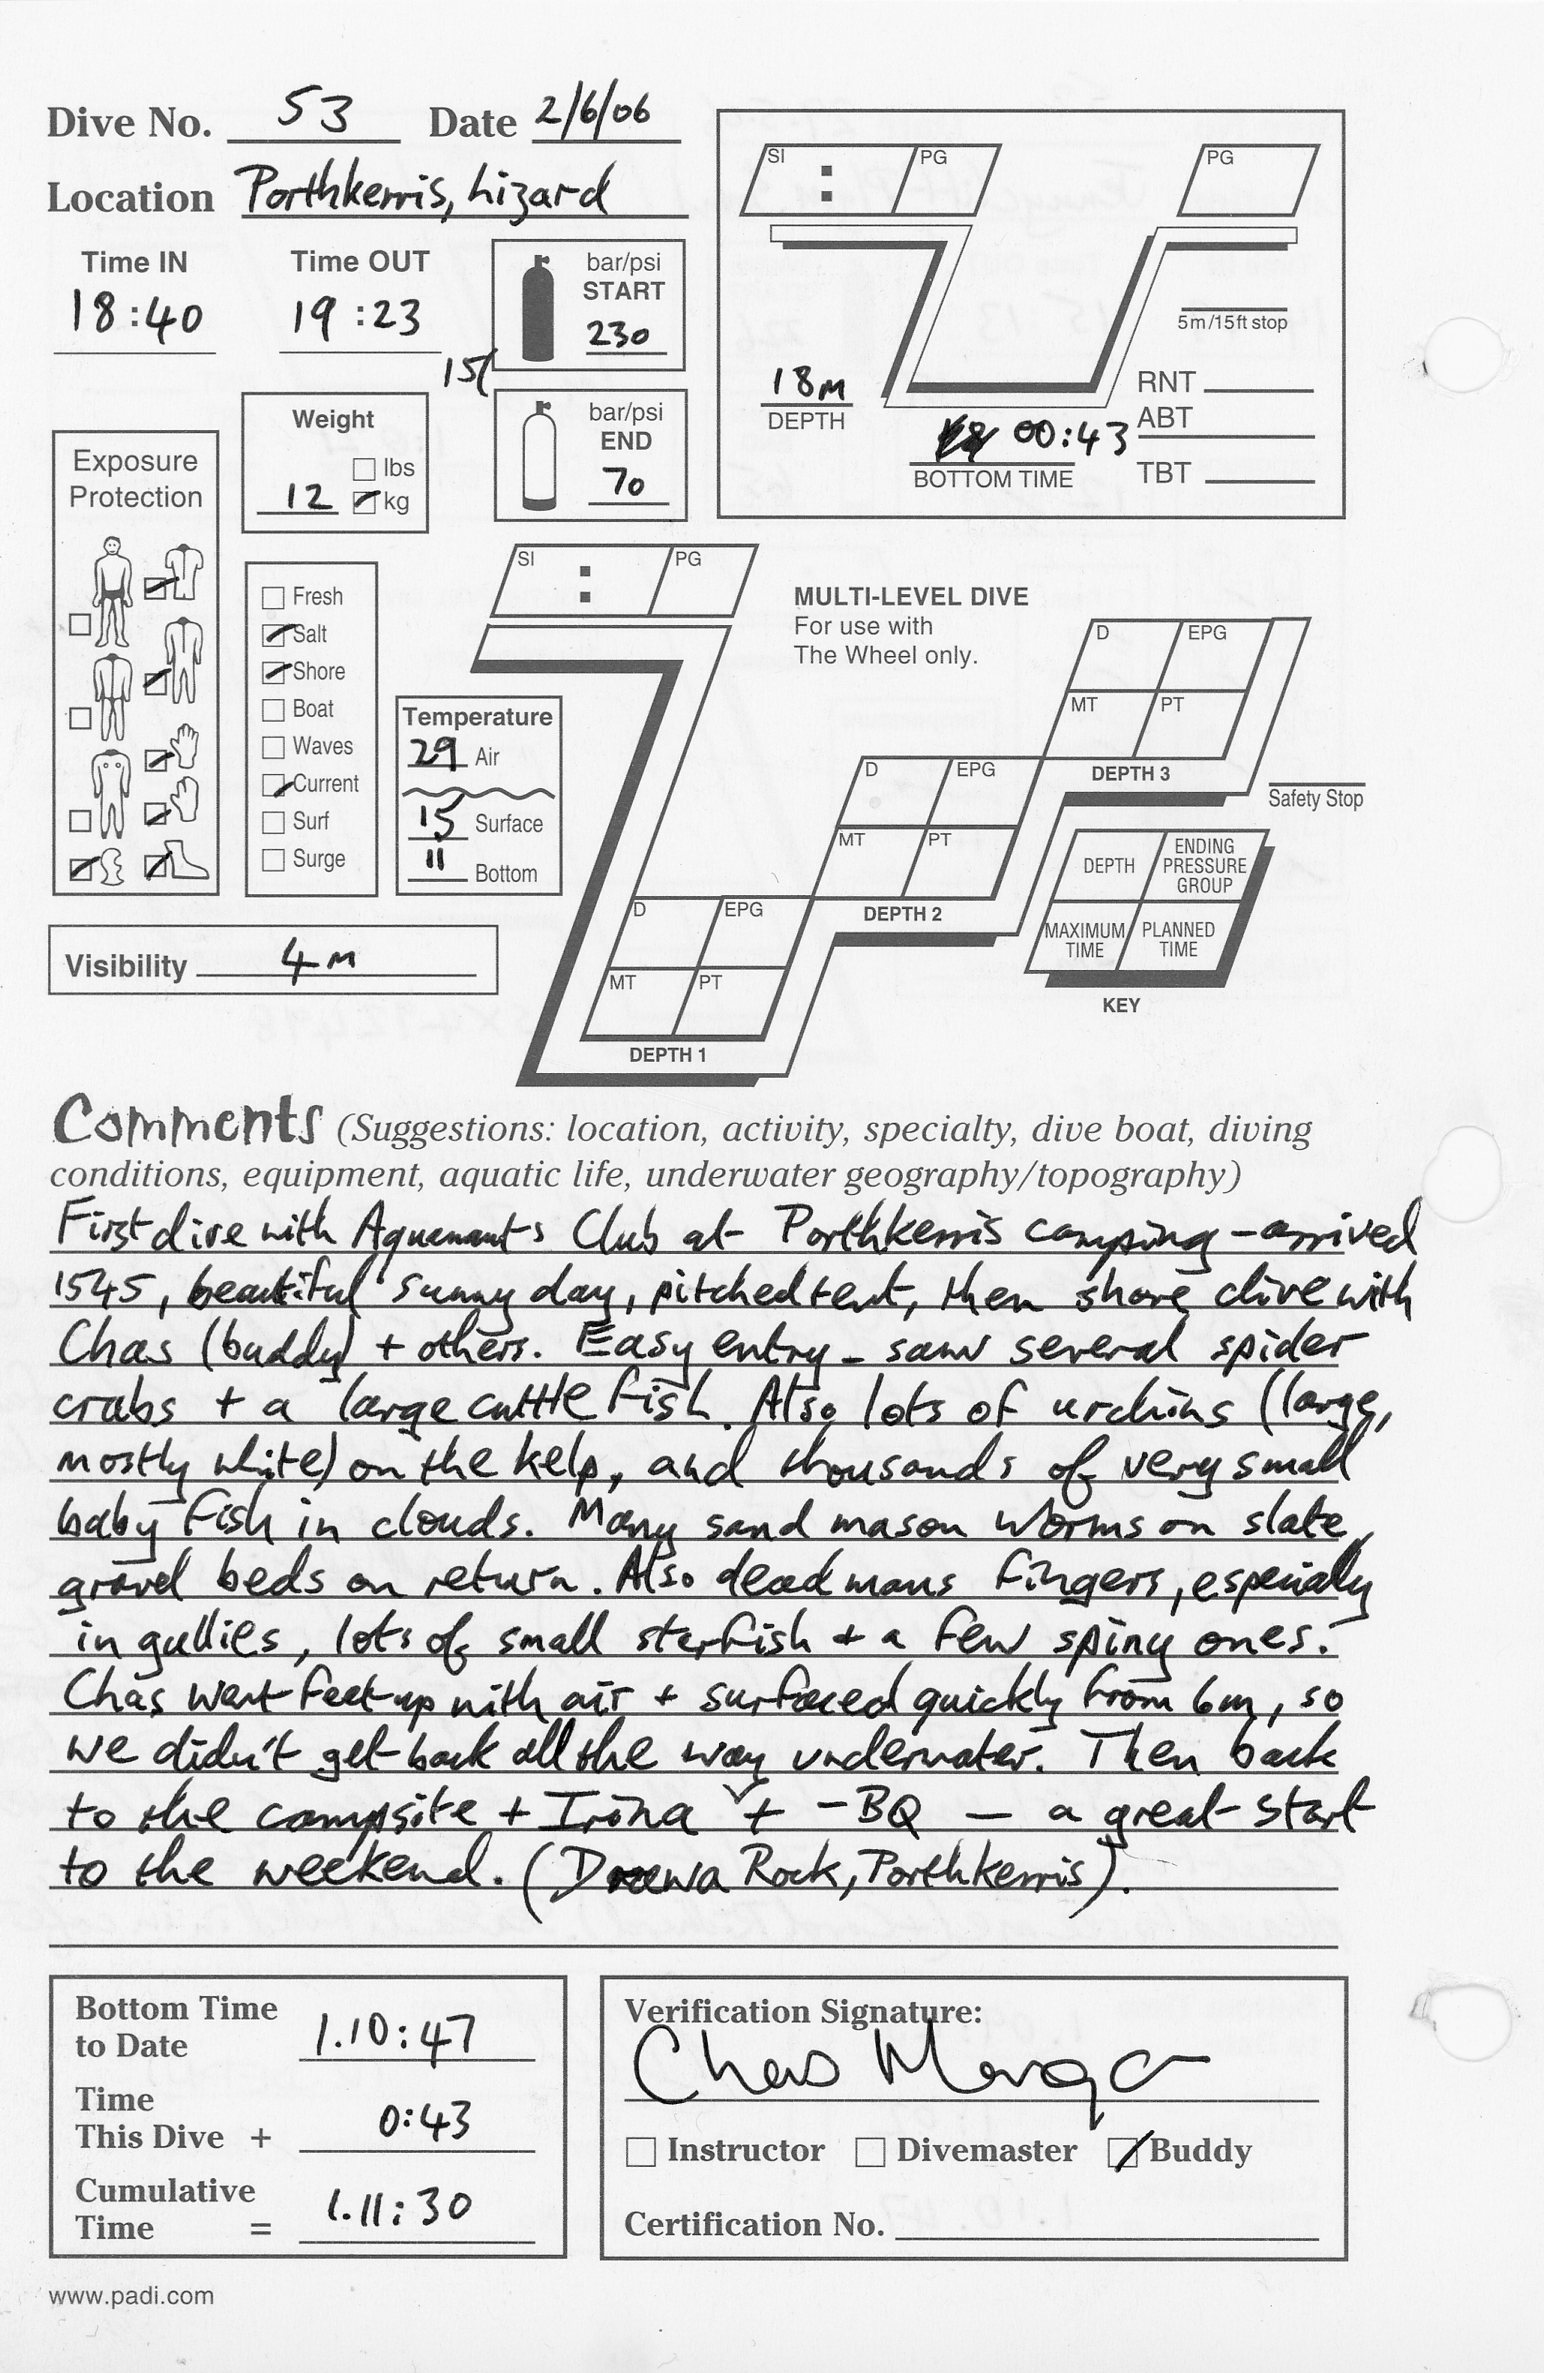 Dive No. 53 Date 2/6/06
Location Porthkerris, Lizard
Time IN Time OUT
18:40 19:23
bar/psi
START
230
15l
bar/psi
END
70
Weight
lbs
12 kg
Exposure
Protection
Fresh
Salt
Shore
Boat
Waves
Current
Surf
Surge
Temperature
29 Air
15 Surface
11 Bottom
Visibility 4m
SI : PG PG
5m/15ft stop
18m
DEPTH
00:43
BOTTOM TIME
RNT
ABT
TBT
SI : PG
MULTI-LEVEL DIVE
For use with
The Wheel only.
D EPG
MT PT
DEPTH 3
D EPG
MT PT
DEPTH 2
D EPG
MT PT
DEPTH 1
Safety Stop
DEPTH ENDING PRESSURE GROUP
MAXIMUM TIME PLANNED TIME
KEY
Comments (Suggestions: location, activity, specialty, dive boat, diving
conditions, equipment, aquatic life, underwater geography/topography)
First dive with Club at Porthkerris camping - arrived
1545, beautiful sunny day, pitched tent, then shore dive with
Chas (buddy) + others. Easy entry - saw several spider
crabs + a large cuttle fish. Also lots of urchins (large,
mostly white) on the kelp, and thousands of very small
baby fish in clouds. Many sand mason worms on slate
gravel beds on return. Also dead mans fingers, especially
in gullies, lots of small starfish + a few spiny ones.
Chas went feet-up with air + surfaced quickly from 6m, so
we didn't get back all the way underwater. Then back
to the campsite + Irina + -BQ — a great start
to the weekend. (Drawna Rock, Porthkerris).
Bottom Time
to Date 1.10:47
Time
This Dive + 0:43
Cumulative
Time = 1.11:30
Verification Signature:
Chas
Instructor Divemaster Buddy
Certification No.
www.padi.com